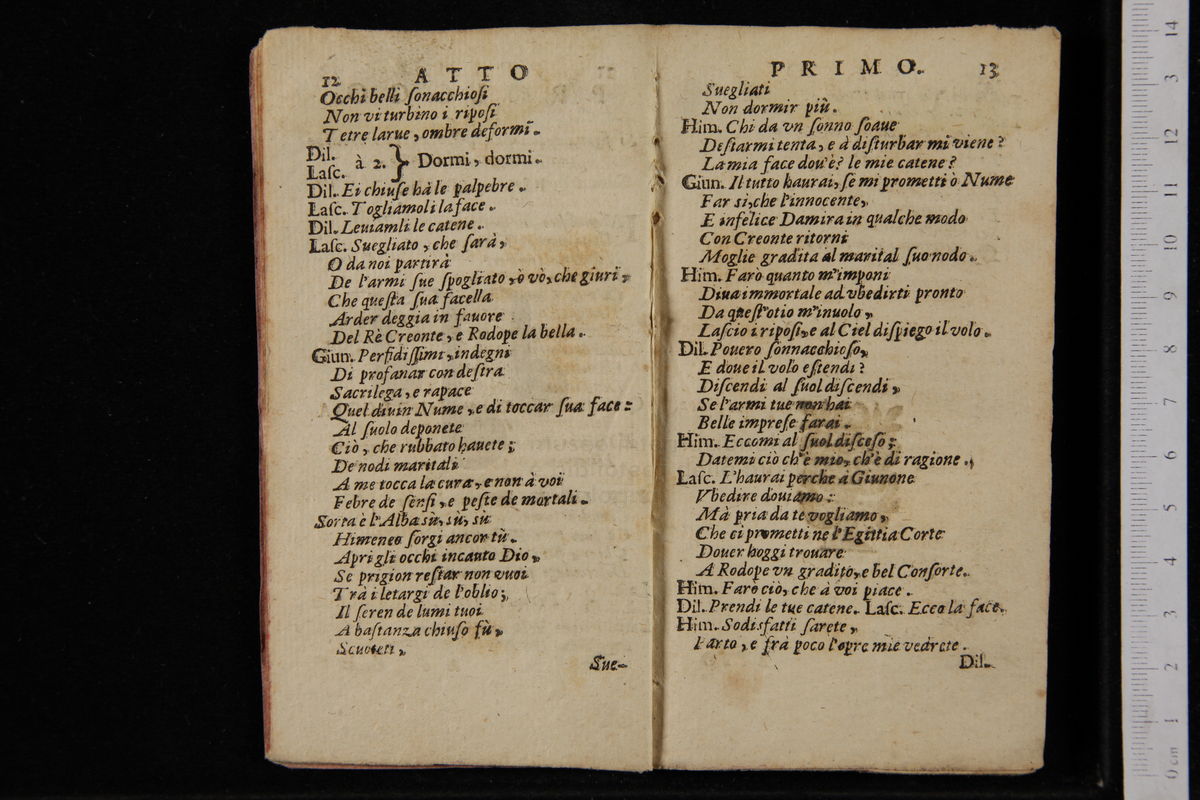 12 ATTO
Occhi belli ſonacchioſi
Non vi turbino i ripoſi
Tetre larue, ombre deformi.
Dil.
Laſc. à 2. } Dormi, dormi.
Dil. Ei chiuſe hà le palpebre.
Laſc. Togliamoli la face.
Dil. Leuiamli le catene.
Laſc. Suegliato, che ſarà,
O da noi partirà
De l'armi ſue ſpogliato, ò vò, che giuri,
Che queſta ſua facella
Arder deggia in fauore
Del Rè Creonte, e Rodope la bella.
Giun. Perfidiſſimi, indegni
Di profanar con deſtra
Sacrilega, e rapace
Quel diuin Nume, e di toccar ſua face:
Al ſuolo deponete
Ciò, che rubbato hauete;
De nodi maritali
A me tocca la cura, e non à voi
Febre de ſenſi, e peſte de mortali.
Sorta è l'Alba sù, sù, sù
Himeneo ſorgi ancor tù.
Apri gli occhi incauto Dio,
Se prigion reſtar non vuoi
Trà i letargi de l'oblio;
Il ſeren de lumi tuoi
A baſtanza chiuſo fù,
Scuoteti,
Sue-
PRIMO. 13
Suegliati
Non dormir più.
Him. Chi da vn ſonno ſoaue
Deſtarmi tenta, e à diſturbar mi viene?
La mia face dou'è? le mie catene?
Giun. Il tutto haurai, ſe mi prometti ò Nume
Far sì, che l'innocente,
E infelice Damira in qualche modo
Con Creonte ritorni
Moglie gradita al marital ſuo nodo.
Him. Farò quanto m'imponi
Diua immortale ad vbedirti pronto
Da queſt'otio m'inuolo,
Laſcio i ripoſi, e al Ciel diſpiego il volo.
Dil. Pouero ſonnacchioſo,
E doue il volo eſtendi?
Diſcendi al ſuol diſcendi,
Se l'armi tue non hai
Belle impreſe farai.
Him. Eccomi al ſuol diſceſo;
Datemi ciò ch'è mio, ch'è di ragione.
Laſc. L'haurai perche à Giunone
Vbedire douiamo:
Mà pria da te vogliamo,
Che ci prometti ne l'Egittia Corte
Douer hoggi trouare
A Rodope vn gradito, e bel Conſorte.
Him. Farò ciò, che à voi piace.
Dil. Prendi le tue catene. Laſc. Ecco la face.
Him. Sodisfatti ſarete,
Parto, e frà poco l'opre mie vedrete.
Dil.